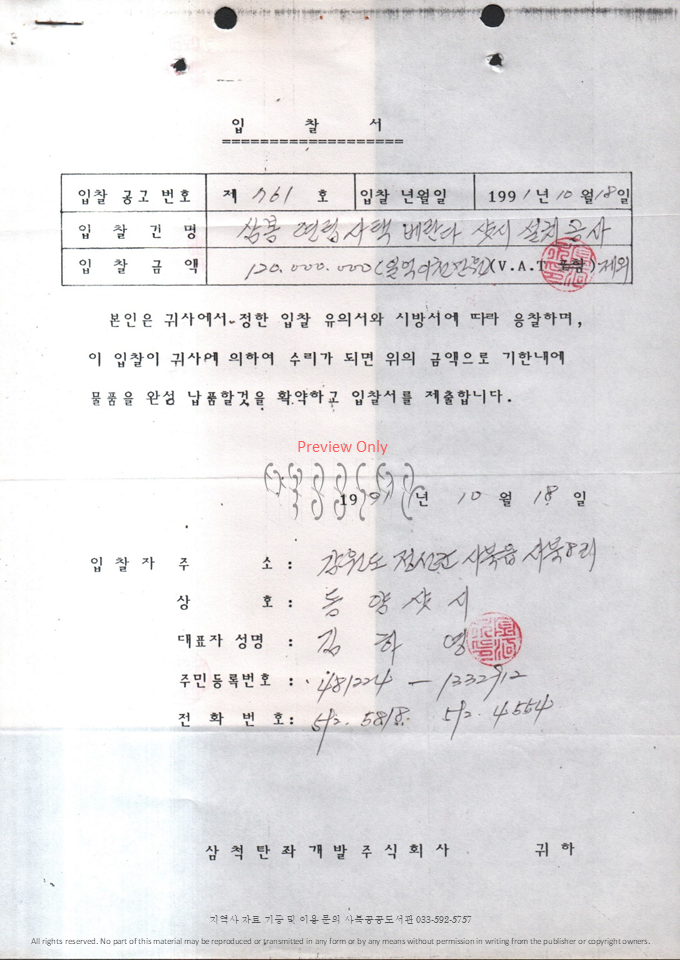 입 찰 서
입찰 공고 번호 제 761 호 입찰 년월일 1991년 10월 18일
입 찰 건 명 연립사택 베란다 샷시 설치공사
입 찰 금 액 120.000.000(일억이천만원)(V.A.T 포함) 제외
본인은 귀사에서 정한 입찰 유의서와 시방서에 따라 응찰하며,
이 입찰이 귀사에 의하여 수리가 되면 위의 금액으로 기한내에
물품을 완성 납품할것을 확약하고 입찰서를 제출합니다.
Preview Only
1991년 10월 18일
입찰자 주 소 : 강원도 정선군 사북읍 사북8리
상 호 : 동양샷시
대표자 성명 : 김하영
주민등록번호 : 481224 - 1332912
전 화 번 호: 592. 5818. 592. 4554
삼척탄좌개발주식회사 귀하
지역사 자료 기증 및 이용 문의 사북공공도서관 033-592-5757
All rights reserved. No part of this material may be reproduced or transmitted in any form or by any means without permission in writing from the publisher or copyright owners.